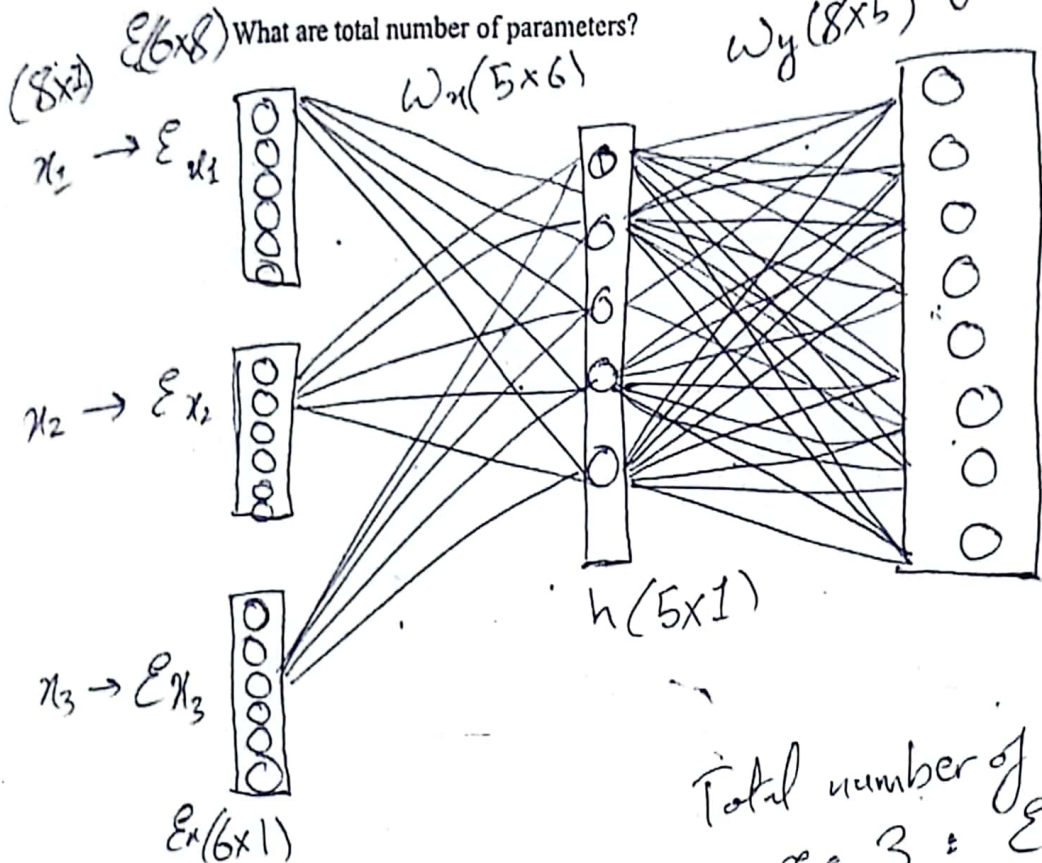 (8x1) E(6x8) What are total number of parameters?
Wx(5x6)
Wy(8x5)
x1 → Ex1
x2 → Ex2
x3 → Ex3
h(5x1)
Ex(6x1)
Total number of